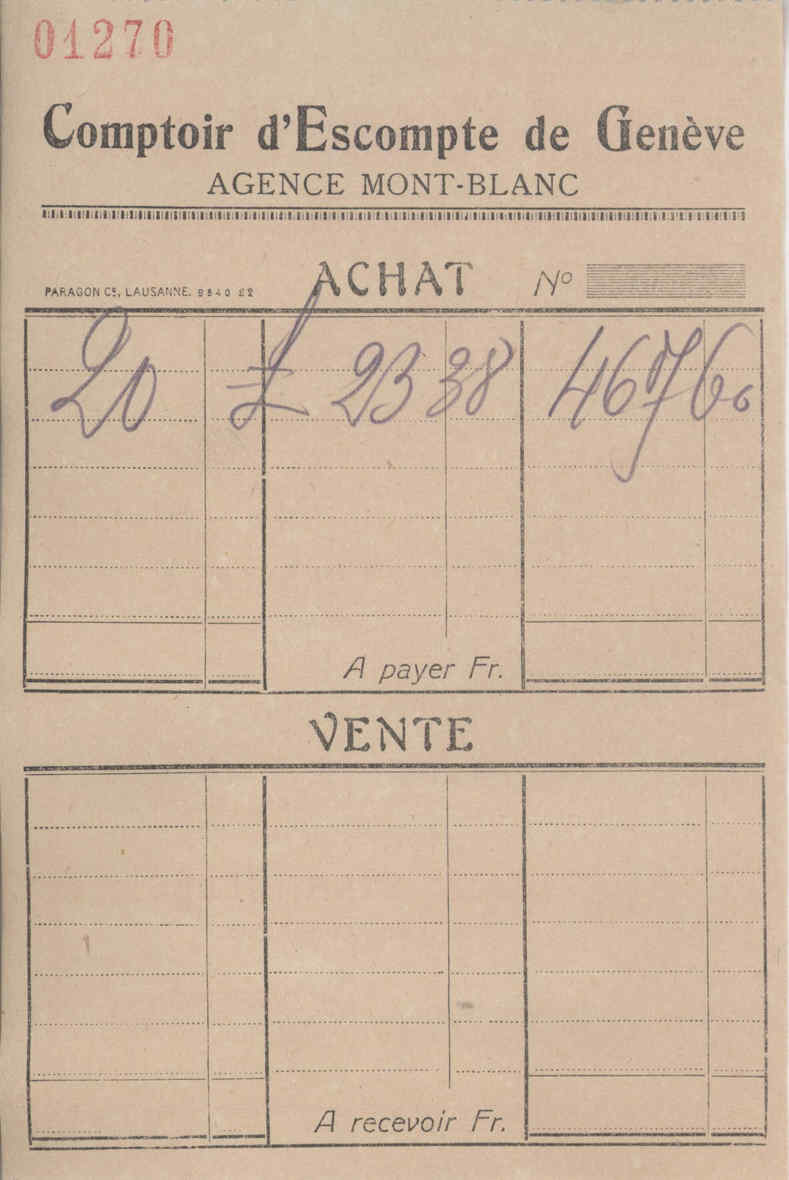 01270
Comptoir d'Escompte de Genève
AGENCE MONT-BLANC
PARAGON Co, LAUSANNE. 9840 22 ACHAT No
20 £ 23 38 467 60
A payer Fr.
VENTE
A recevoir Fr.